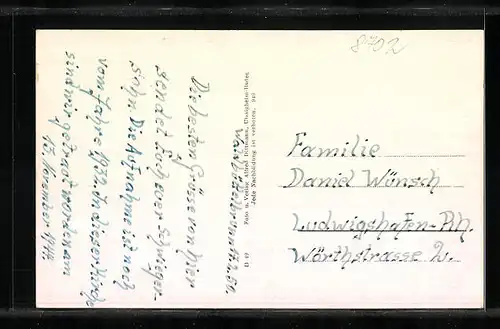 8702
Die besten Grüsse von hier
sendet Euch euer Schwieger-
sohn. Die Aufnahme ist noch
vom Jahre 1932. In dieser Kirche
sind wir getraut worden am
15. November 1941.
Foto u. Verlag Alfred
Jede Nachbildung ist verboten.
Familie
Daniel Wünsch
Ludwigshafen-Rh.
Wörthstrasse 2.